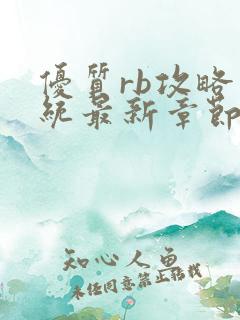 優質rb攻略
統最新章節
知心人魚
未经同意禁止转载